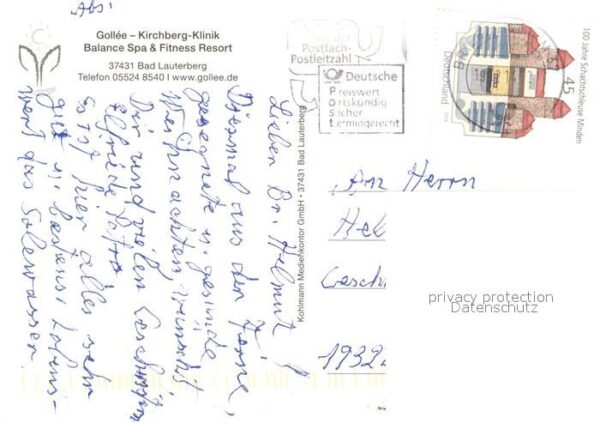 Abs:
Gollée – Kirchberg-Klinik
Balance Spa & Fitness Resort
37431 Bad Lauterberg
Telefon 05524 8540 I www.gollee.de
mit der
Postfach-
Postleitzahl
Deutsche
Preiswert
Ortskundig
Sicher
termingerecht
100 Jahre Schachtschleuse Minden
Deutschland
45
Lieber Br. Helmut!
Diesmal aus der Ferne,
gesegnete u. gesunde
Weihnachten wünscht
Dir und vielen Geschwistern
Elfriede
Es ist hier alles sehr
gut u. bestens,
das Solewasser.
Kohlmann Medienkontor GmbH • 37431 Bad Lauterberg
An Herrn
Hel
Gesch
1932
privacy protection
Datenschutz